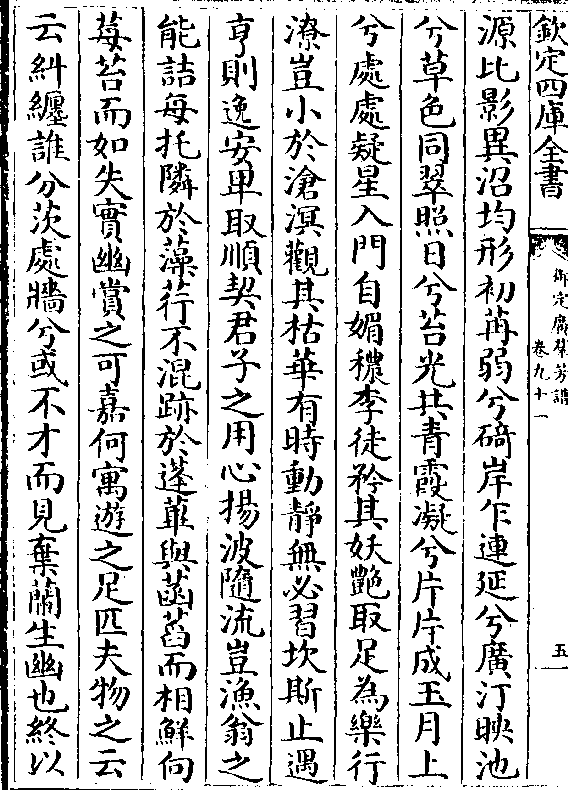 欽定四庫全書
御定廣羣芳譜
卷九十一
五
源比影異沼均形初苒弱兮碕岸乍連延兮廣汀映池
兮草色同翠照日兮苔光共青霞凝兮片片成玉月上
兮處處疑星入門自媚穠李徒矜其妖艷取足為樂行
潦豈小於滄溟觀其枯華有時動靜無必習坎斯止遇
亨則逸安卑取順契君子之用心揚波隨流豈漁翁之
能詰每托隣於藻荇不混跡於蓬蓽與菡萏而相鮮向
莓苔而如失實幽賞之可嘉何寓遊之足匹夫物之云
云糾纏誰分茨處牆兮或不才而見棄蘭生幽也終以